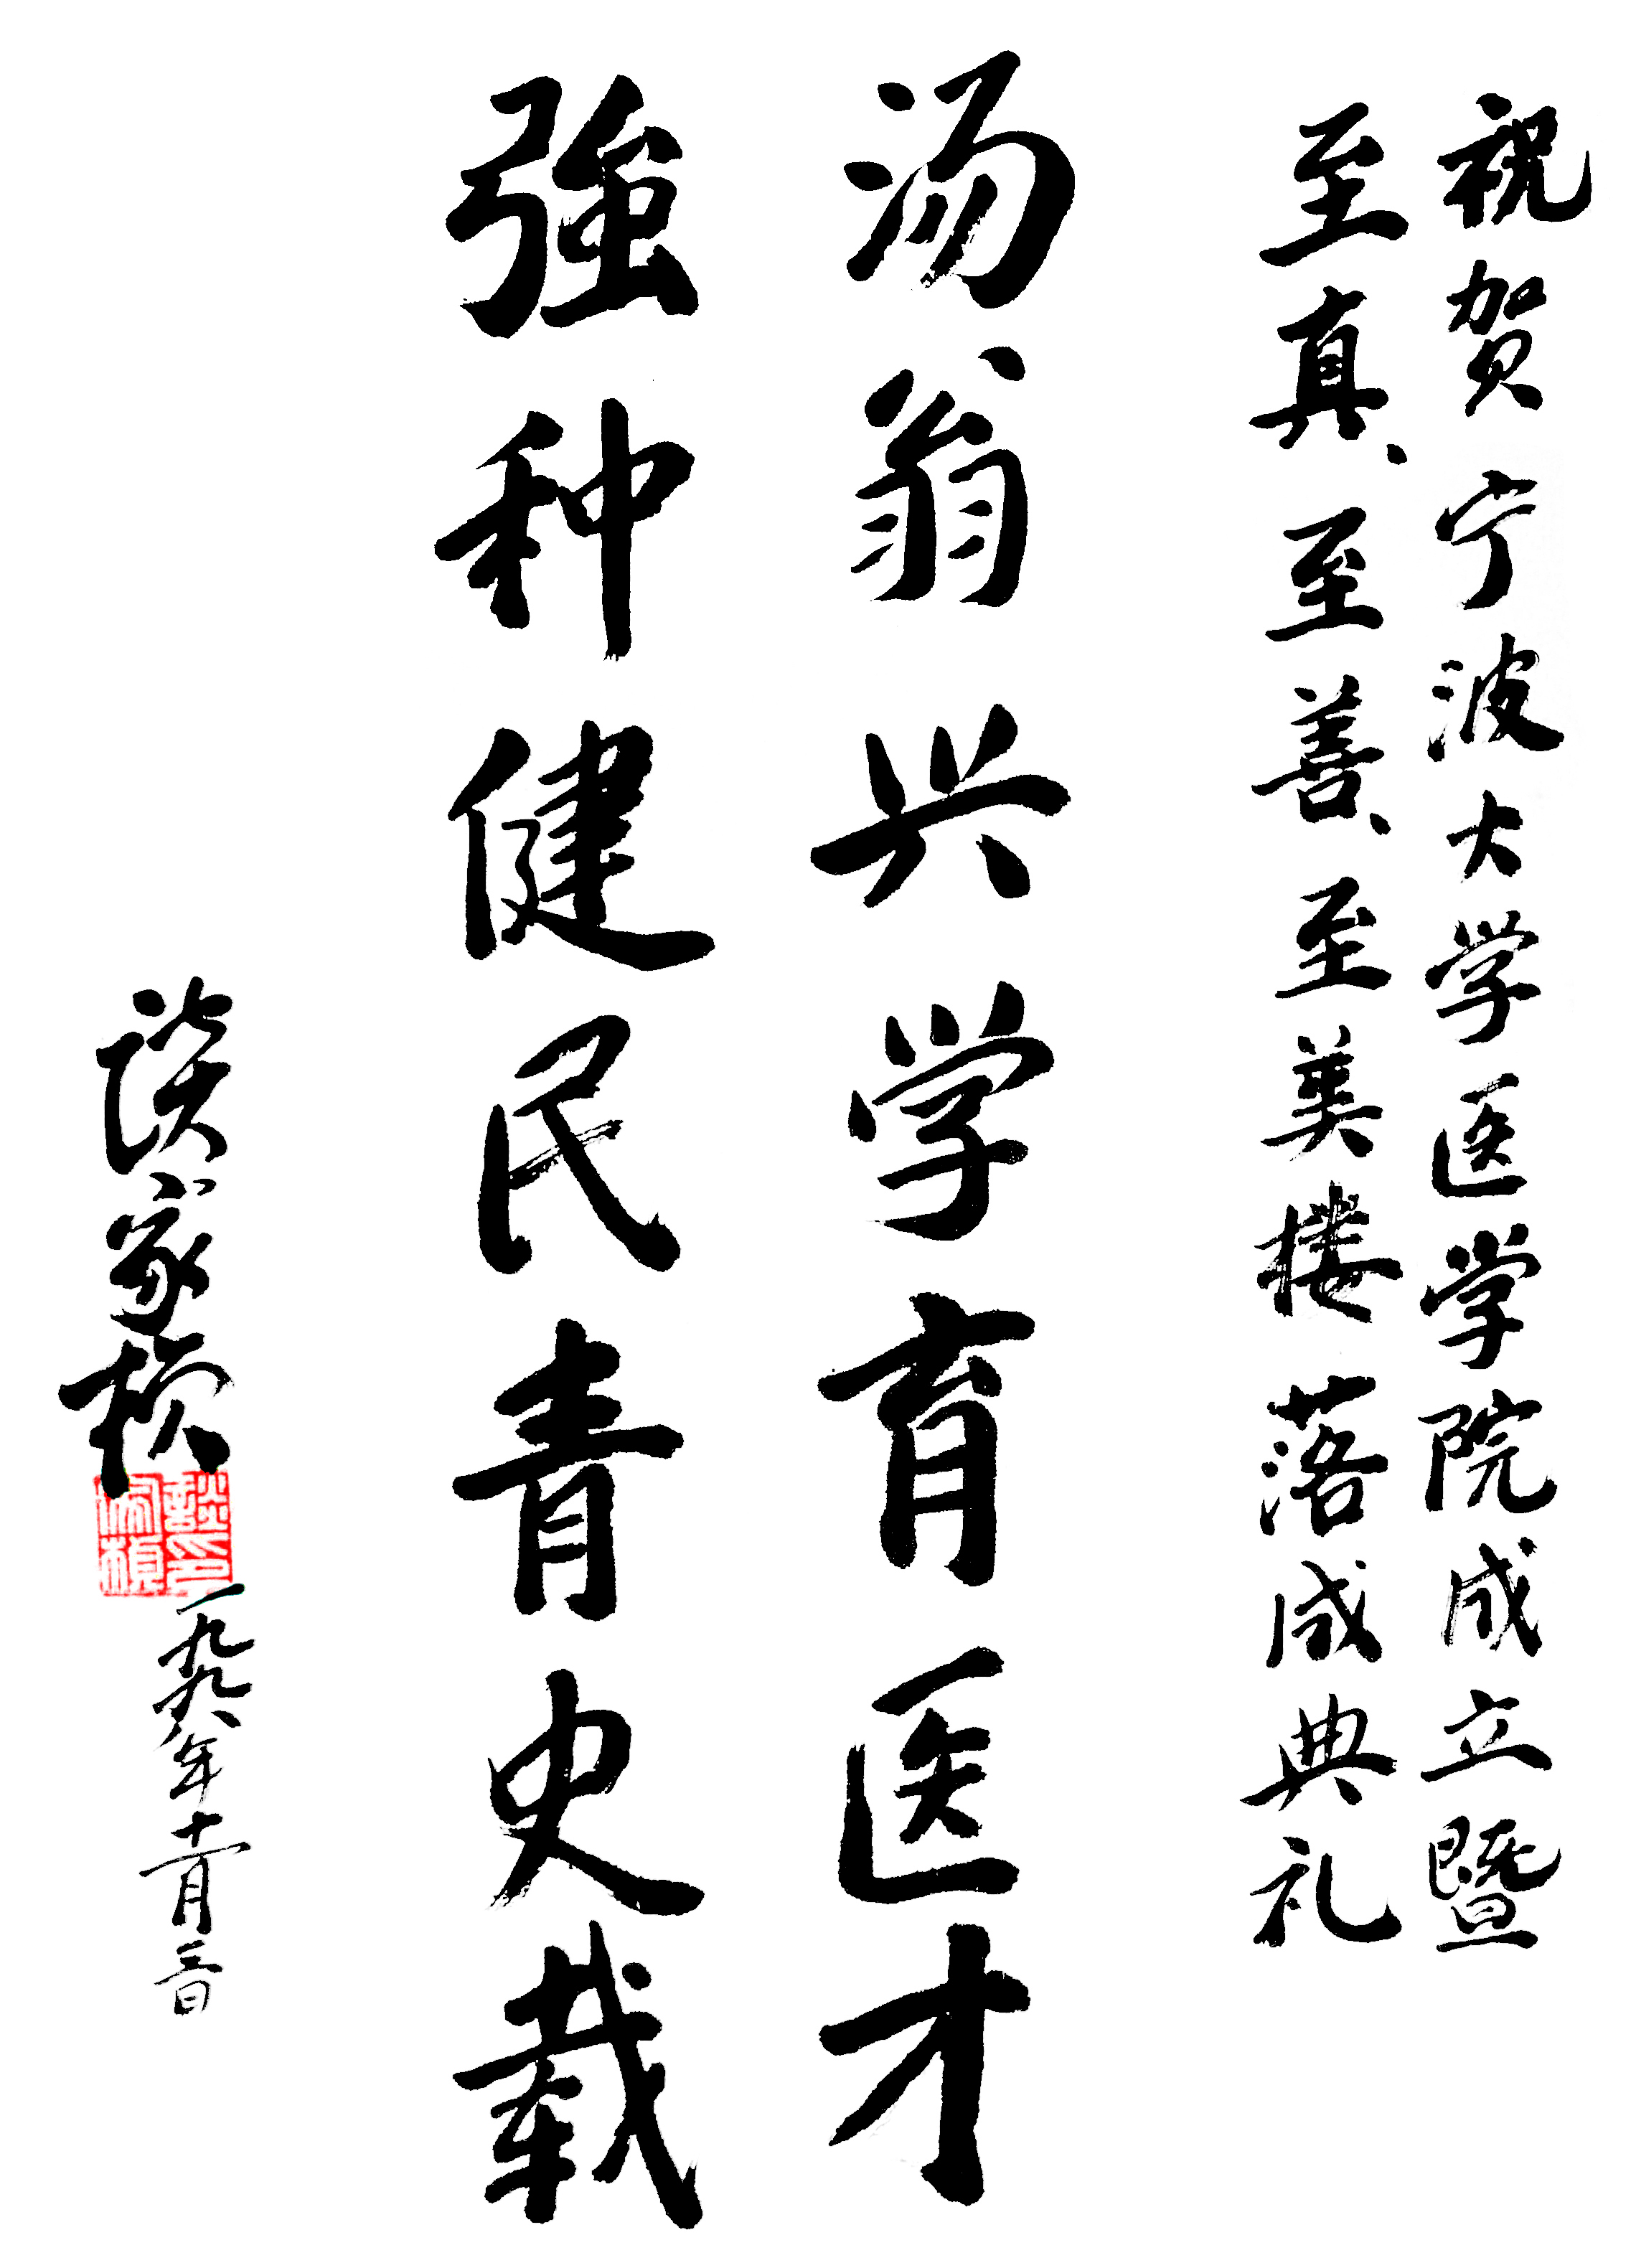 祝贺宁波大学医学院成立暨
至真、至善、至美楼落成典礼
汤翁兴学育医才
強种健民青史载
谈家桢
談家楨印
一九九八年十一月二日